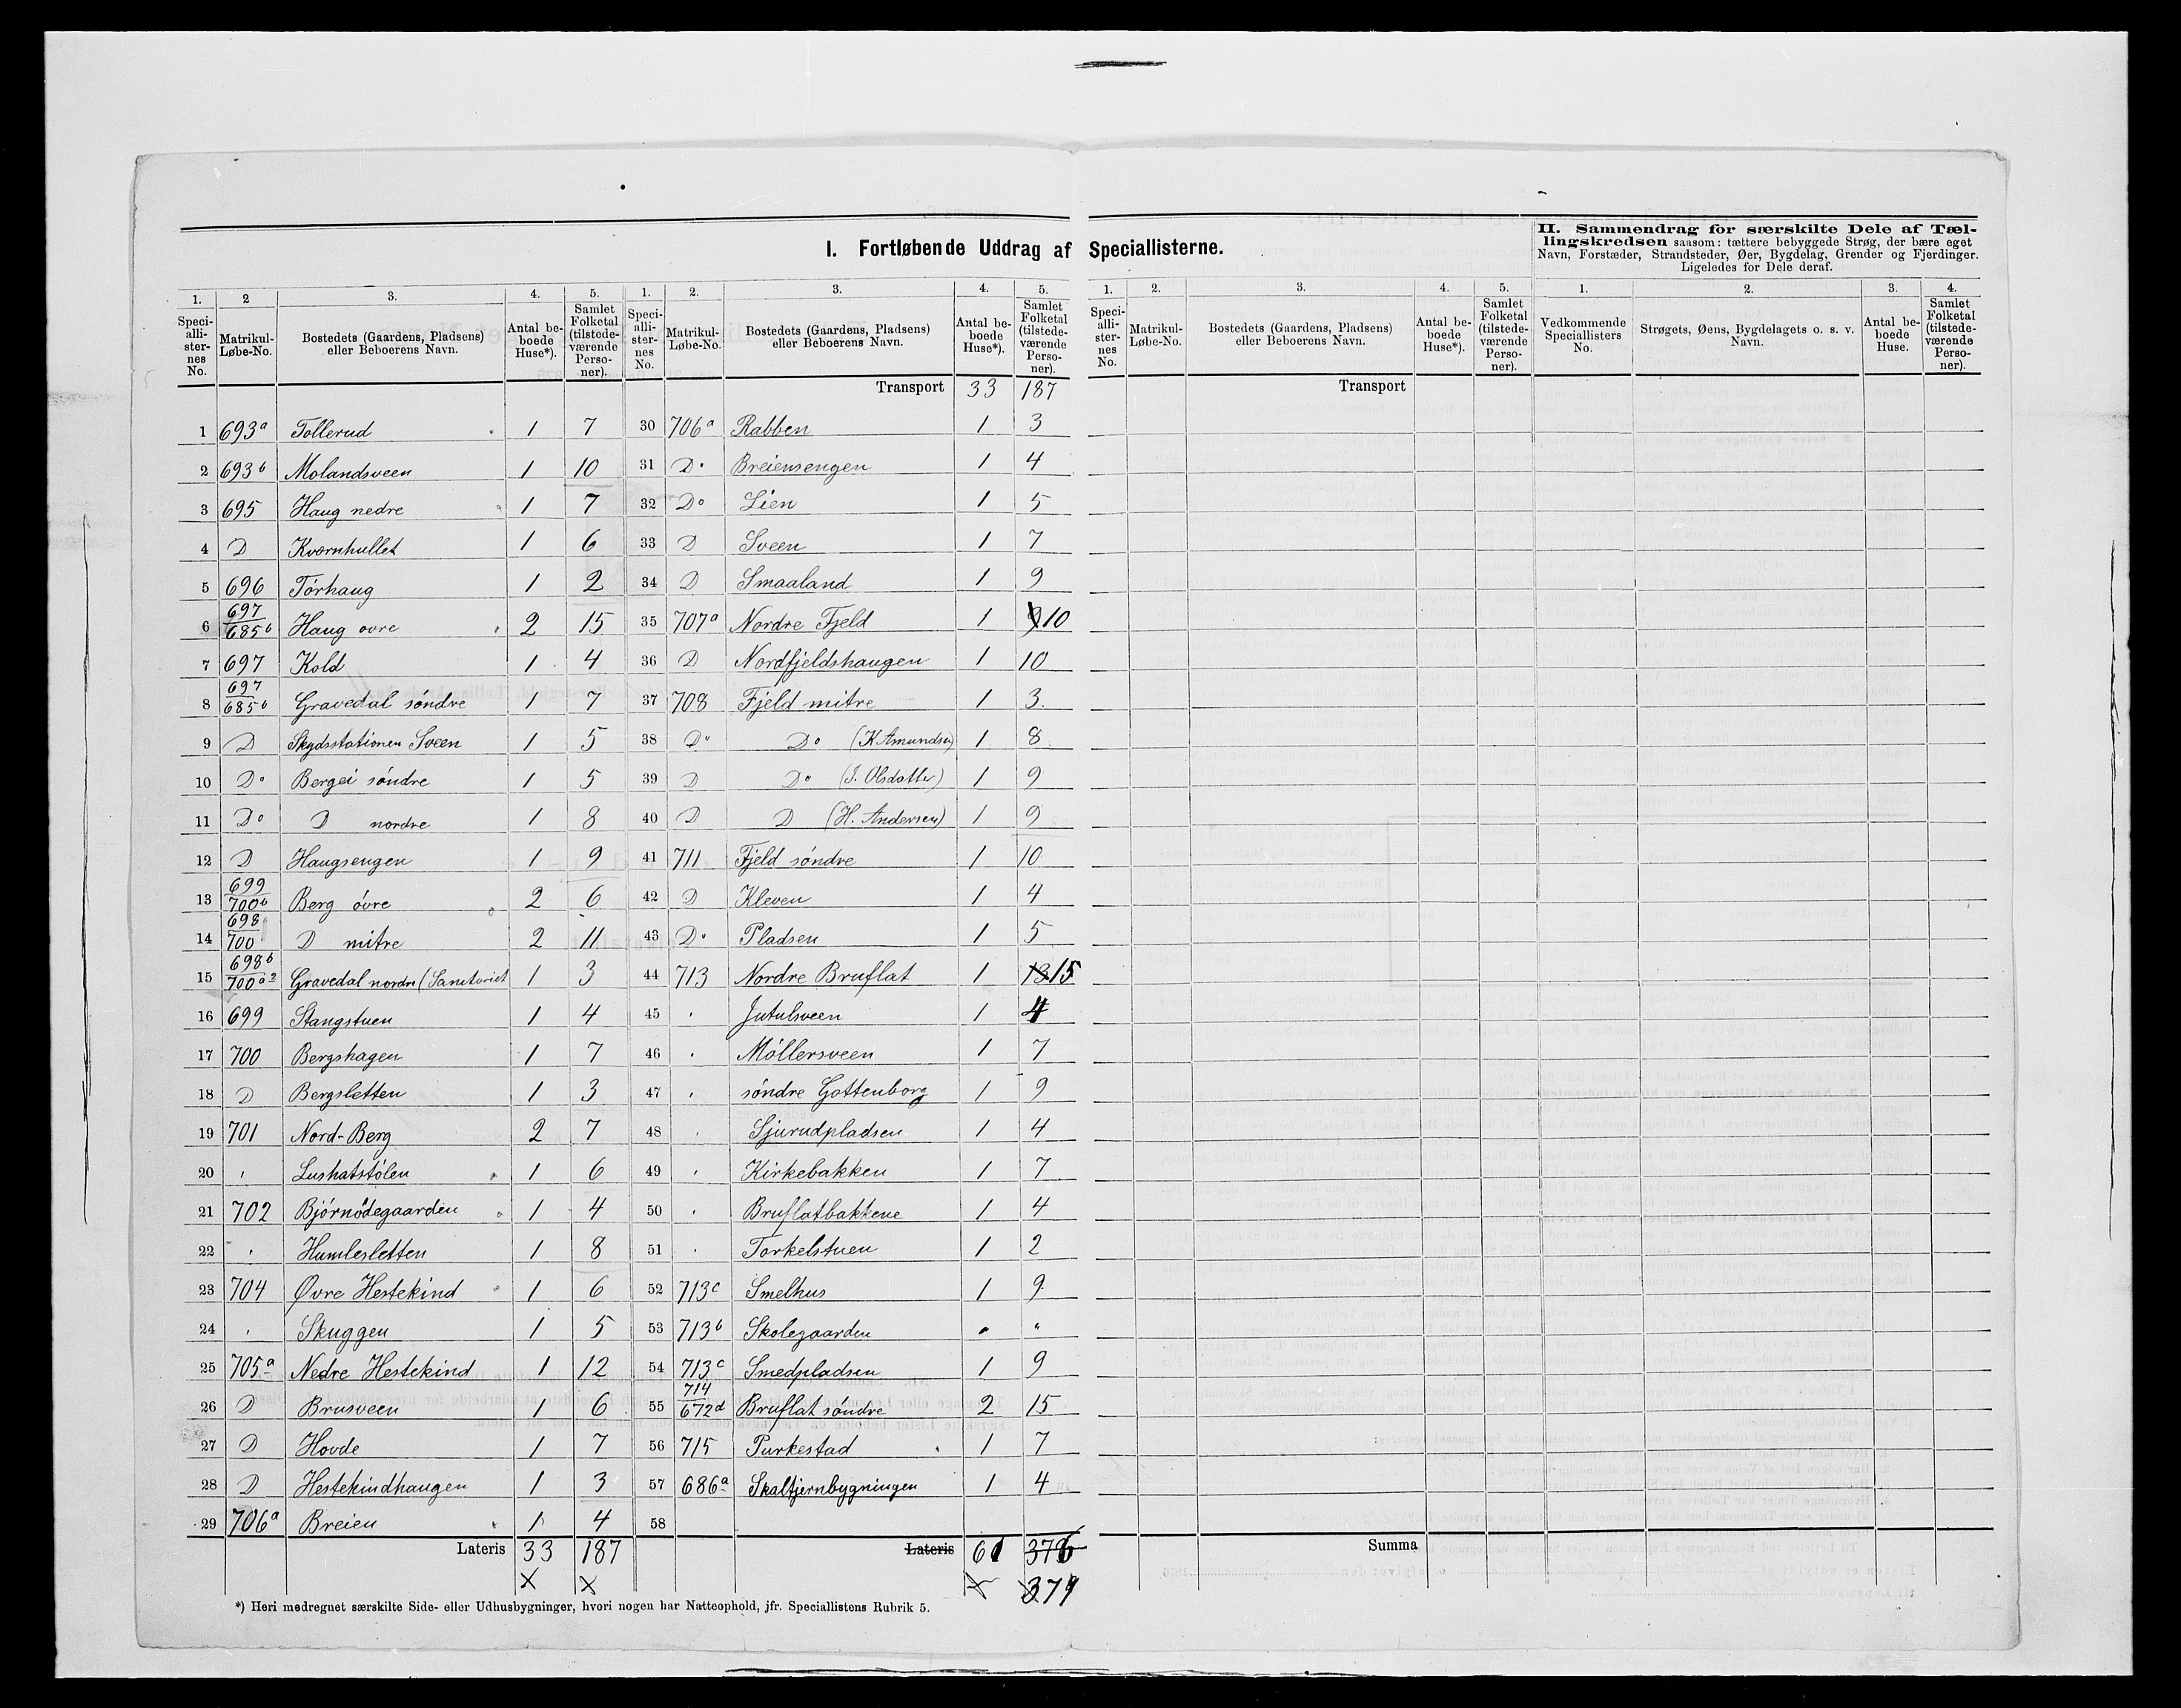 I. Fortløbende Uddrag af Speciallisterne.
II. Sammendrag for særskilte Dele af Tæl-
lingskredsen saasom: tættere bebyggede Strøg, der bære eget
Navn, Forstæder, Strandsteder, Øer, Bygdelag, Grender og Fjerdinger.
Ligeledes for Dele deraf.
1. 2 3. 4. 5.
Speci-alli-ster-nes No. Matrikul-Løbe-No. Bostedets (Gaardens, Pladsens) eller Beboerens Navn. Antal be-boede Huse*). Samlet Folketal (tilstede-værende Perso-ner).
1 693a Tollerud 1 7
2 693b Molandsveen 1 10
3 695 Haug nedre 1 7
4 D Kvornhullet 1 6
5 696 Tørhaug 1 2
6 697/685b Haug ovre 2 15
7 697 Kold 1 4
8 697/685b Gravedal søndre 1 7
9 D Skydsstationen Sveen 1 5
10 Do Bergei søndre 1 5
11 Do D nordre 1 8
12 D Haugsengen 1 9
13 699/700b Berg øvre 2 6
14 698/700 D mitre 2 11
15 698b/700a2 Gravedal nordre (Sanitoriet 1 3
16 699 Stangstuen 1 4
17 700 Bergshagen 1 7
18 D Bergsletten 1 3
19 701 Nord-Berg 2 7
20 " Lushatstølen 1 6
21 702 Bjørnødegaarden 1 4
22 " Humlesletten 1 8
23 704 Øvre Hestekind 1 6
24 " Skuggen 1 5
25 705a Nedre Hestekind 1 12
26 D Brusveen 1 6
27 D Hovde 1 7
28 D Hestekindhaugen 1 3
29 706a Breien 1 4
Lateris 33 187
x x
1. 2. 3. 4. 5.
Speci-alli-ster-nes No. Matrikul-Løbe-No. Bostedets (Gaardens, Pladsens) eller Beboerens Navn. Antal be-boede Huse*). Samlet Folketal (tilstede-værende Perso-ner).
Transport 33 187
30 706a Rabben 1 3
31 Do Breiensengen 1 4
32 Do Lien 1 5
33 D Sveen 1 7
34 D Smaaland 1 9
35 707a Nordre Fjeld 1 9 10
36 D Nordfjeldshaugen 1 10
37 708 Fjeld mitre 1 3
38 Do Do (K Amundsen) 1 8
39 D Do (I. Olsdatter) 1 9
40 D D (H. Andersen) 1 9
41 711 Fjeld søndre 1 10
42 D Kleven 1 4
43 Do Pladsen 1 5
44 713 Nordre Bruflat 1 13 15
45 " Jutulsveen 1 4
46 " Møllersveen 1 7
47 " søndre Gottenborg 1 9
48 " Sjurudpladsen 1 4
49 " Kirkebakken 1 7
50 " Bruflatbakkene 1 4
51 " Torkelstuen 1 2
52 713c Smelhus 1 9
53 713b Skolegaarden " "
54 713c Smedpladsen 1 9
55 714/672d Bruflat søndre 2 15
56 715 Purkestad 1 7
57 686a Skaltjernbygningen 1 4
58
Lateris 61 376
x 379
1. 2. 3. 4. 5.
Speci-alli-ster-nes No. Matrikul-Løbe-No. Bostedets (Gaardens, Pladsens) eller Beboerens Navn. Antal be-boede Huse*). Samlet Folketal (tilstede-værende Perso-ner).
Transport
Summa
1. 2. 3. 4.
Vedkommende Speciallisters No. Strøgets, Øens, Bygdelagets o. s. v. Navn. Antal be-boede Huse. Samlet Folketal (tilstede-værende Perso-ner).
*) Heri medregnet særskilte Side- eller Udhusbygninger, hvori nogen har Natteophold, jfr. Speciallistens Rubrik 5.